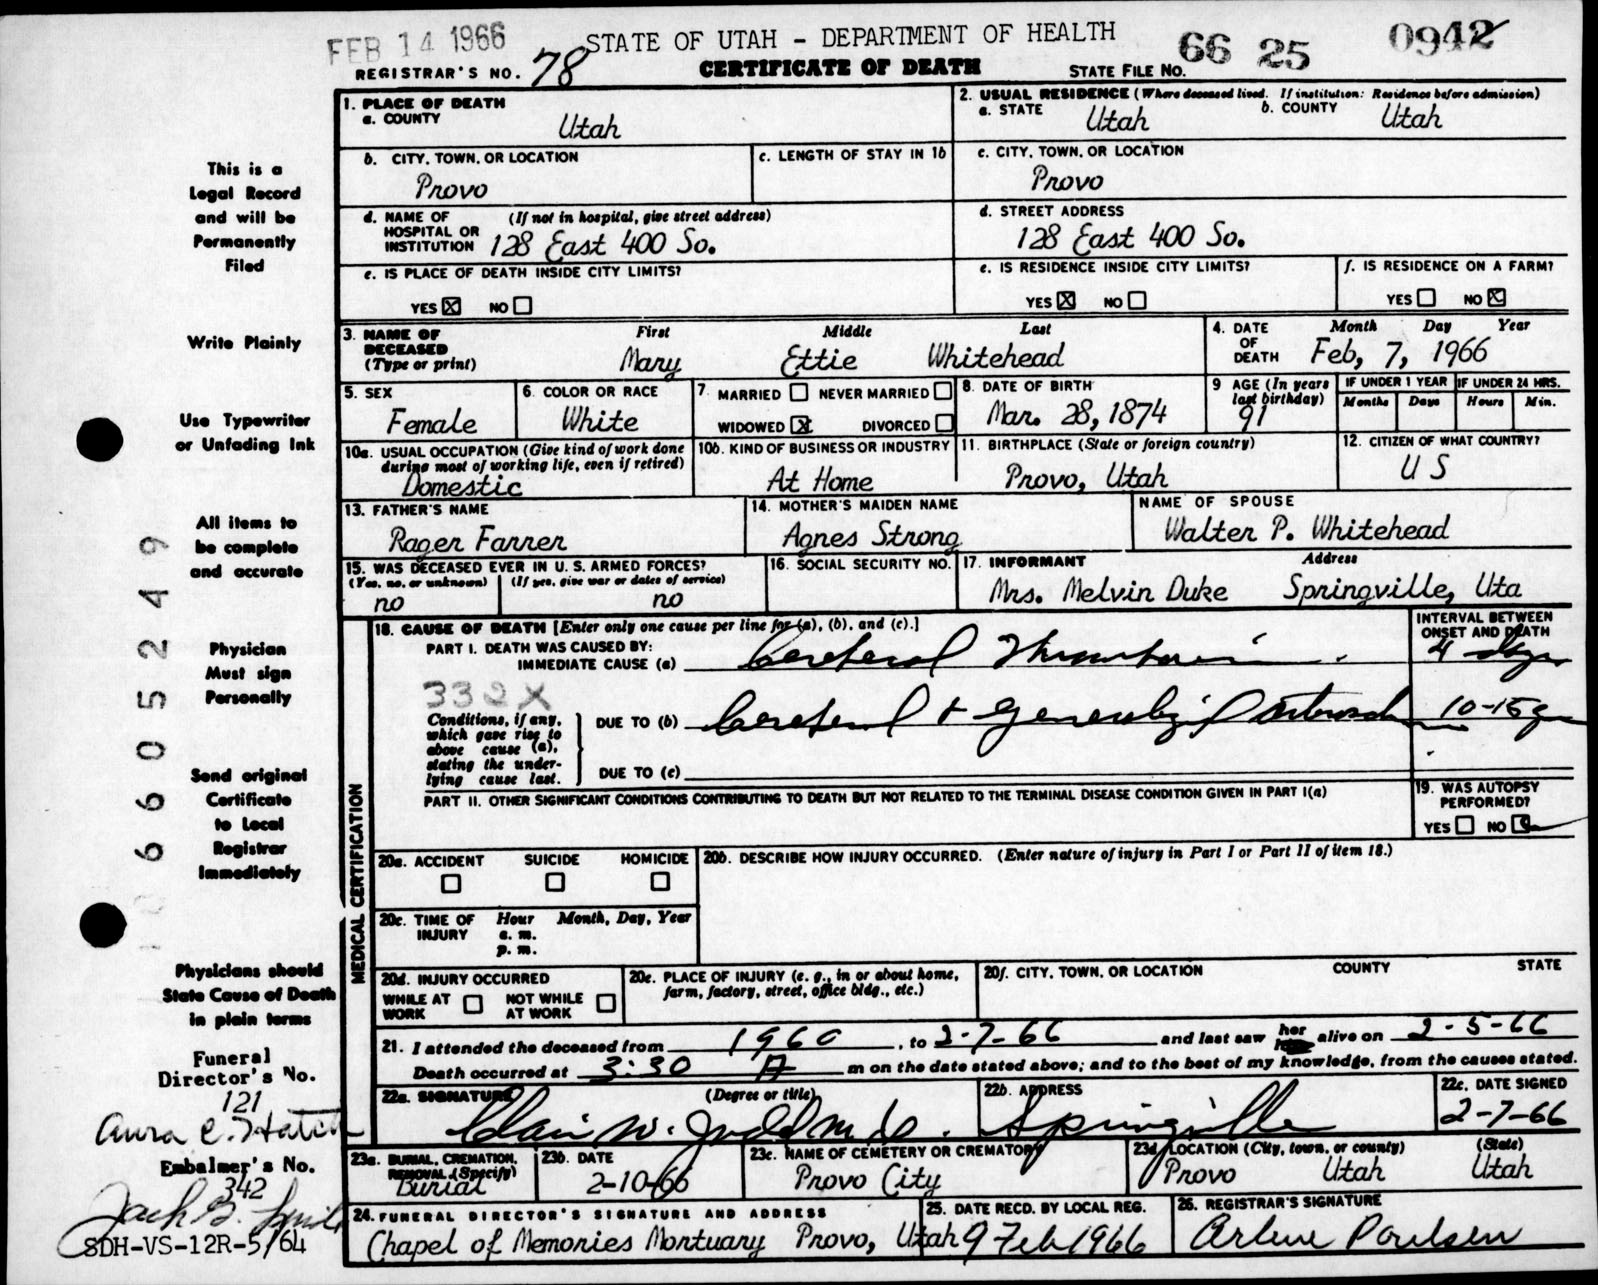 FEB 14 1966
STATE OF UTAH - DEPARTMENT OF HEALTH
66 25 0942
REGISTRAR'S NO. 78
CERTIFICATE OF DEATH
STATE FILE NO.
1. PLACE OF DEATH
a. COUNTY
Utah
2. USUAL RESIDENCE (Where deceased lived. If institution: Residence before admission)
a. STATE
Utah
b. COUNTY
Utah
b. CITY, TOWN, OR LOCATION
Provo
c. LENGTH OF STAY IN 1b
c. CITY, TOWN, OR LOCATION
Provo
d. NAME OF (If not in hospital, give street address)
HOSPITAL OR
INSTITUTION 128 East 400 So.
d. STREET ADDRESS
128 East 400 So.
e. IS PLACE OF DEATH INSIDE CITY LIMITS?
YES NO
e. IS RESIDENCE INSIDE CITY LIMITS?
YES NO
f. IS RESIDENCE ON A FARM?
YES NO
3. NAME OF DECEASED (Type or print)
First Middle Last
Mary Ettie Whitehead
4. DATE OF DEATH
Month Day Year
Feb, 7, 1966
5. SEX
Female
6. COLOR OR RACE
White
7 MARRIED NEVER MARRIED
WIDOWED DIVORCED
8. DATE OF BIRTH
Mar. 28, 1874
9 AGE (In years
last birthday)
91
IF UNDER 1 YEAR
Months Days
IF UNDER 24 HRS.
Hours Min.
10a. USUAL OCCUPATION (Give kind of work done
during most of working life, even if retired)
Domestic
10b. KIND OF BUSINESS OR INDUSTRY
At Home
11. BIRTHPLACE (State or foreign country)
Provo, Utah
12. CITIZEN OF WHAT COUNTRY?
U S
13. FATHER'S NAME
Rager Farrer
14. MOTHER'S MAIDEN NAME
Agnes Strong
NAME OF SPOUSE
Walter P. Whitehead
15. WAS DECEASED EVER IN U. S. ARMED FORCES?
(Yes, no, or unknown) (If yes, give war or dates of service)
no no
16. SOCIAL SECURITY NO.
17. INFORMANT Address
Mrs. Melvin Duke Springville, Uta
MEDICAL CERTIFICATION
18. CAUSE OF DEATH [Enter only one cause per line for (a), (b), and (c).]
INTERVAL BETWEEN
ONSET AND DEATH
PART I. DEATH WAS CAUSED BY:
IMMEDIATE CAUSE (a) Cerebral Thrombosis 4 days
332X
Conditions, if any,
which gave rise to
above cause (a),
stating the under-
lying cause last.
DUE TO (b) Cerebral + Generalized 10-15
DUE TO (c)
PART II. OTHER SIGNIFICANT CONDITIONS CONTRIBUTING TO DEATH BUT NOT RELATED TO THE TERMINAL DISEASE CONDITION GIVEN IN PART I(a)
19. WAS AUTOPSY
PERFORMED?
YES NO
20a. ACCIDENT SUICIDE HOMICIDE
20b. DESCRIBE HOW INJURY OCCURRED. (Enter nature of injury in Part I or Part II of item 18.)
20c. TIME OF INJURY
Hour Month, Day, Year
a. m.
p. m.
20d. INJURY OCCURRED
WHILE AT WORK
NOT WHILE AT WORK
20e. PLACE OF INJURY (e. g., in or about home,
farm, factory, street, office bldg., etc.)
20f. CITY, TOWN, OR LOCATION COUNTY STATE
21. I attended the deceased from 1960, to 2-7-66 and last saw her alive on 2-5-66
Death occurred at 3:30 A m on the date stated above; and to the best of my knowledge, from the causes stated.
22a. SIGNATURE (Degree or title)
Clair W. Judd M.D.
22b. ADDRESS
Springville
22c. DATE SIGNED
2-7-66
23a. BURIAL, CREMATION,
REMOVAL (Specify)
Burial
23b. DATE
2-10-66
23c. NAME OF CEMETERY OR CREMATORY
Provo City
23d LOCATION (City, town, or county) (State)
Provo Utah Utah
24. FUNERAL DIRECTOR'S SIGNATURE AND ADDRESS
Chapel of Memories Mortuary Provo, Utah
25. DATE RECD. BY LOCAL REG.
9 Feb 1966
26. REGISTRAR'S SIGNATURE
Arlene Poulsen
This is a
Legal Record
and will be
Permanently
Filed
Write Plainly
Use Typewriter
or Unfading Ink
All items to
be complete
and accurate
Physician
Must sign
Personally
Send original
Certificate
to Local
Registrar
Immediately
Physicians should
State Cause of Death
in plain terms
Funeral
Director's No.
121
Embalmer's No.
342
SDH-VS-12R-5/64
6605249